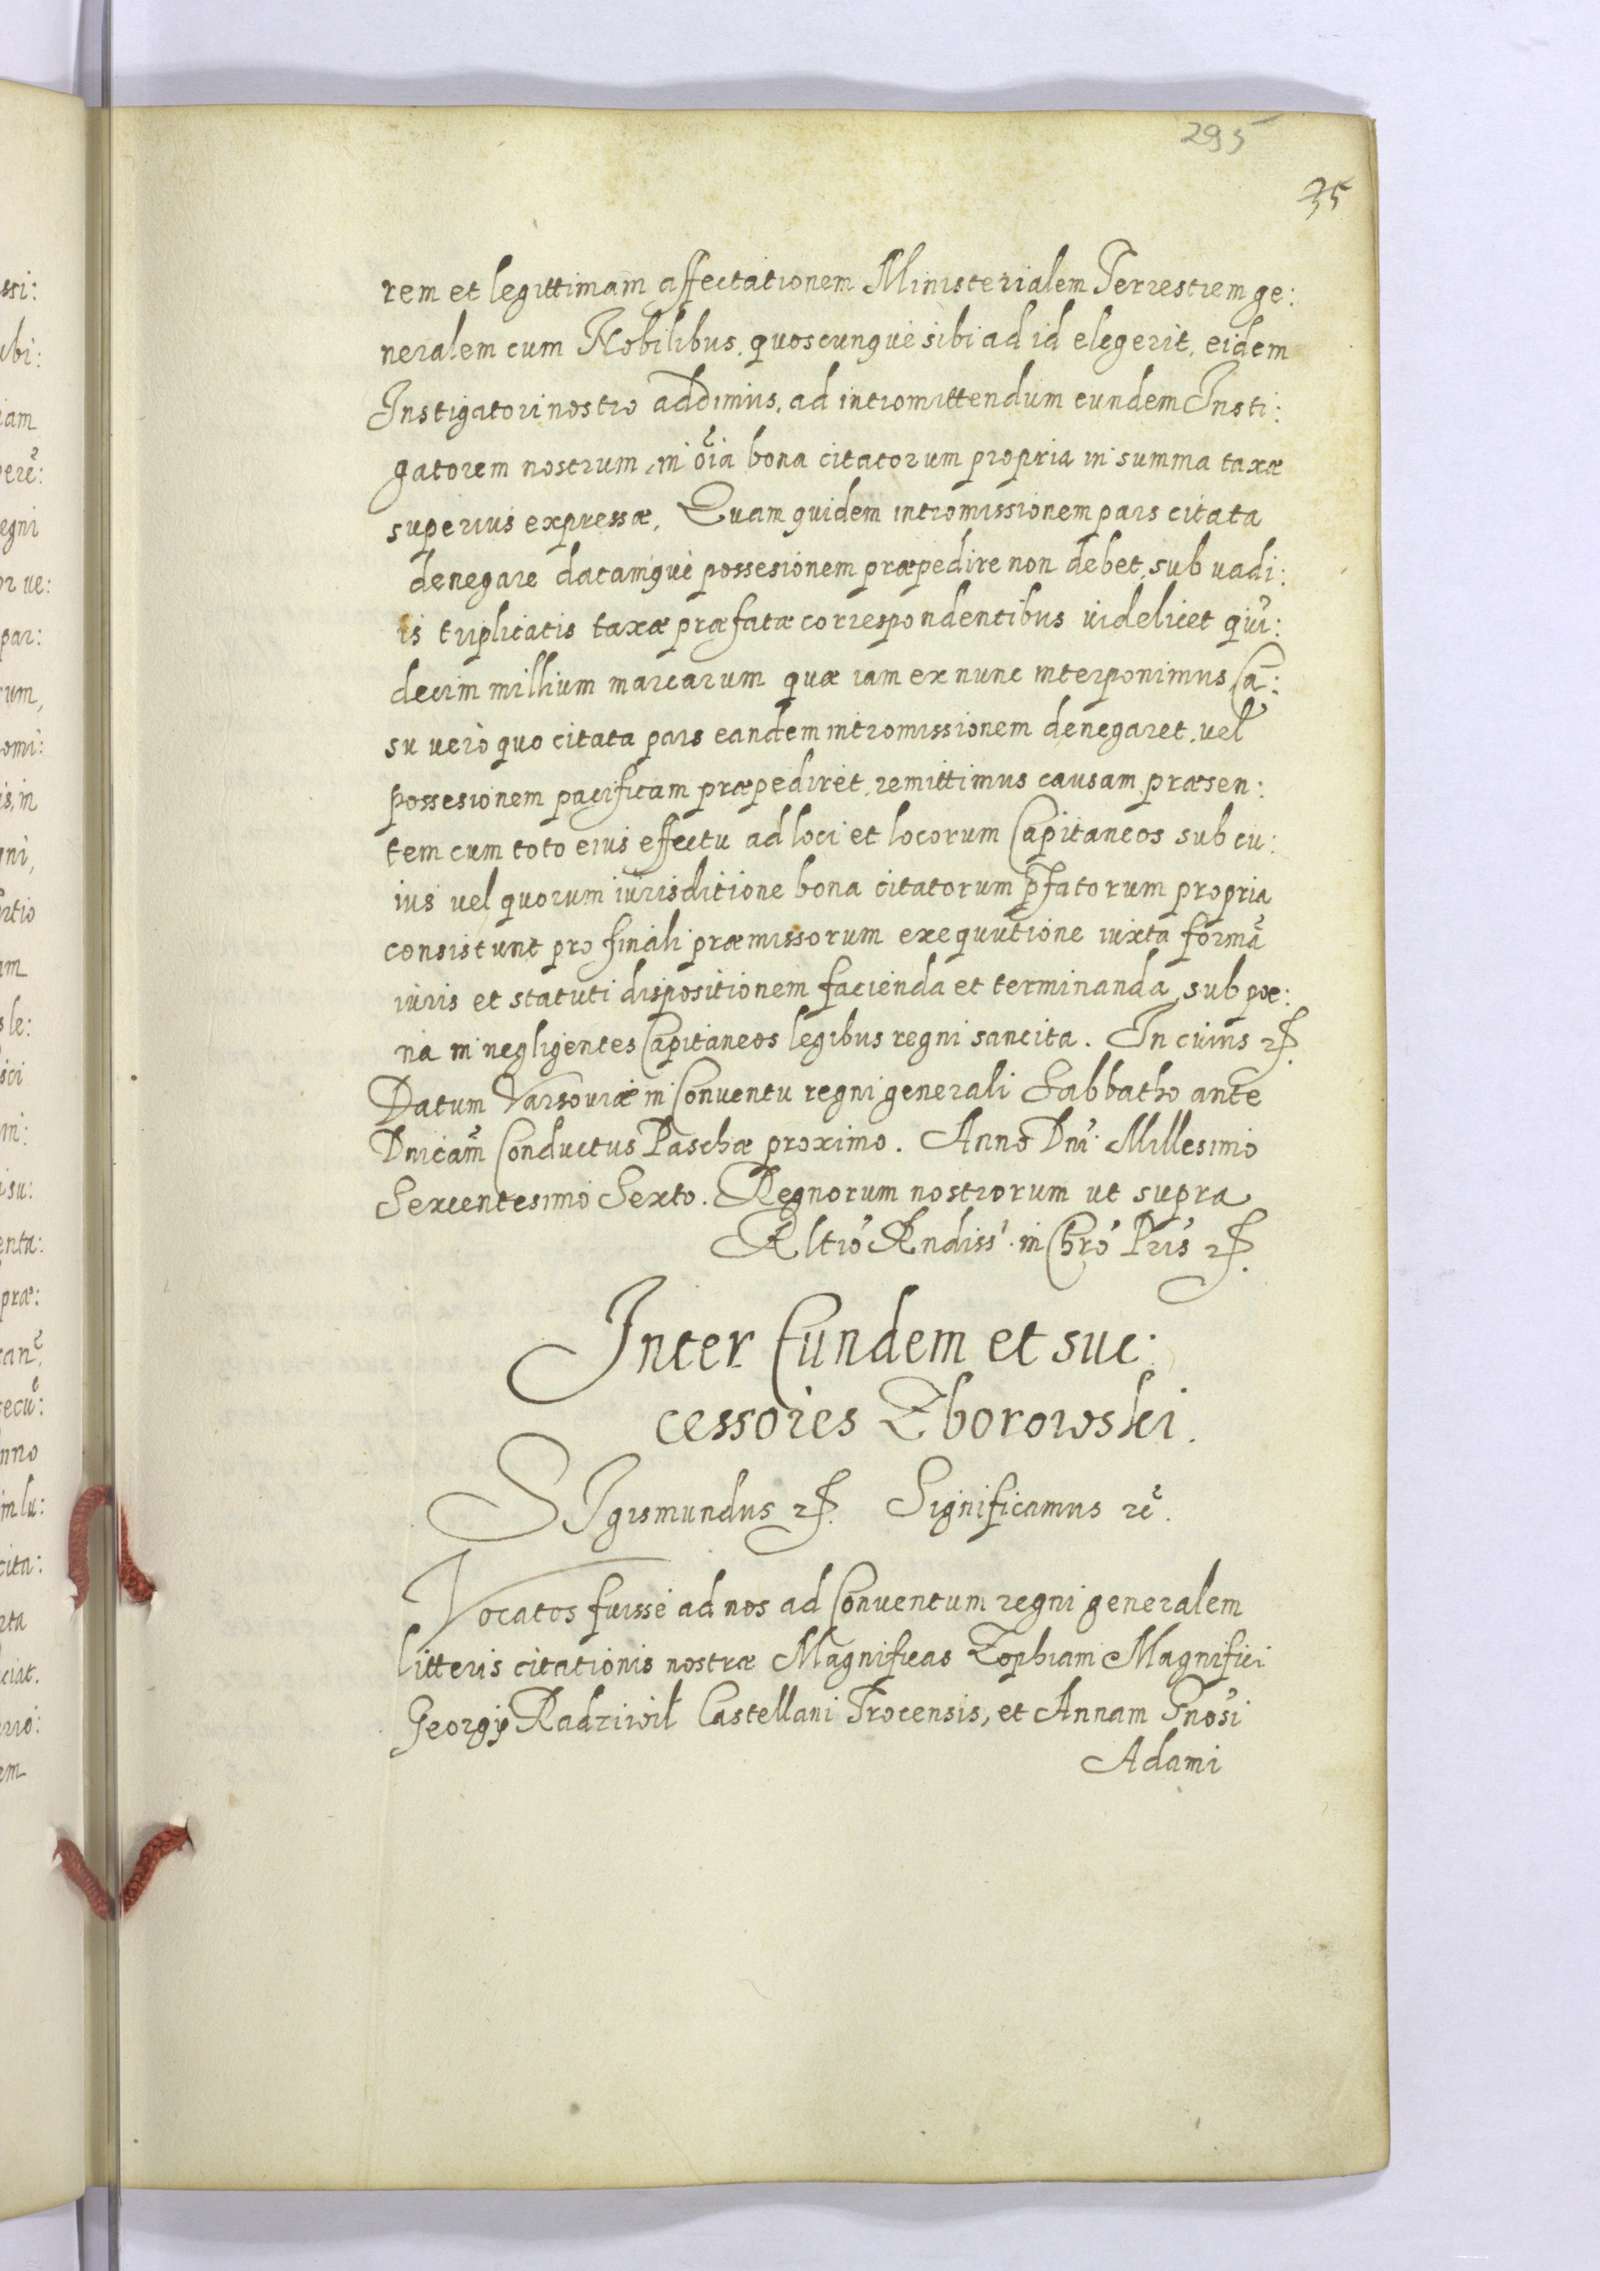 295
35
rem et legittimam affectationem Ministerialem Terrestrem ge:
neralem cum Nobilibus, quoscunque sibi ad id elegerit, eidem
Instigatori nostro addimus, ad intromittendum eundem Insti:
gatorem nostrum, in oĩa bona citatorum propria in summa taxæ
superius expressæ, Quam quidem intromissionem pars citata
denegare datamque possesionem præpedire non debet, sub vadi:
is triplicatis taxæ præfatæ correspondentibus videlicet qui:
decim millium marcarum quæ iam ex nunc interponimus, Ca:
su vero quo citata pars eandem intromissionem denegaret, vel
possesionem pacificam præpediret, remittimus causam præsen:
tem cum toto eius effectu ad loci et locorum Capitaneos sub cu:
ius vel quorum iurisditione bona citatorum pfatorum propria
consistunt pro finali præmissorum exequutione iuxta formã
iuris et statuti dispositionem facienda et terminanda, sub poe:
na in negligentes Capitaneos legibus regni sancita. In cuius
Datum Varsoviæ in Conventu regni generali Sabbatho ante
Dnicam Conductus Paschæ proximo. Anno Dni Millesimo
Sexcentesimo Sexto. Regnorum nostrorum ut supra
Rltio Rndiss. in Chro Pris
Inter Eundem et suc:
cessores Zborowski.
SIgismundus Significamus
Vocatos fuisse ad nos ad Conventum regni generalem
litteris citationis nostræ Magnificas Zophiam Magnifici
Georgij Radziwil Castellani Trocensis, et Annam Gnosi
Adami